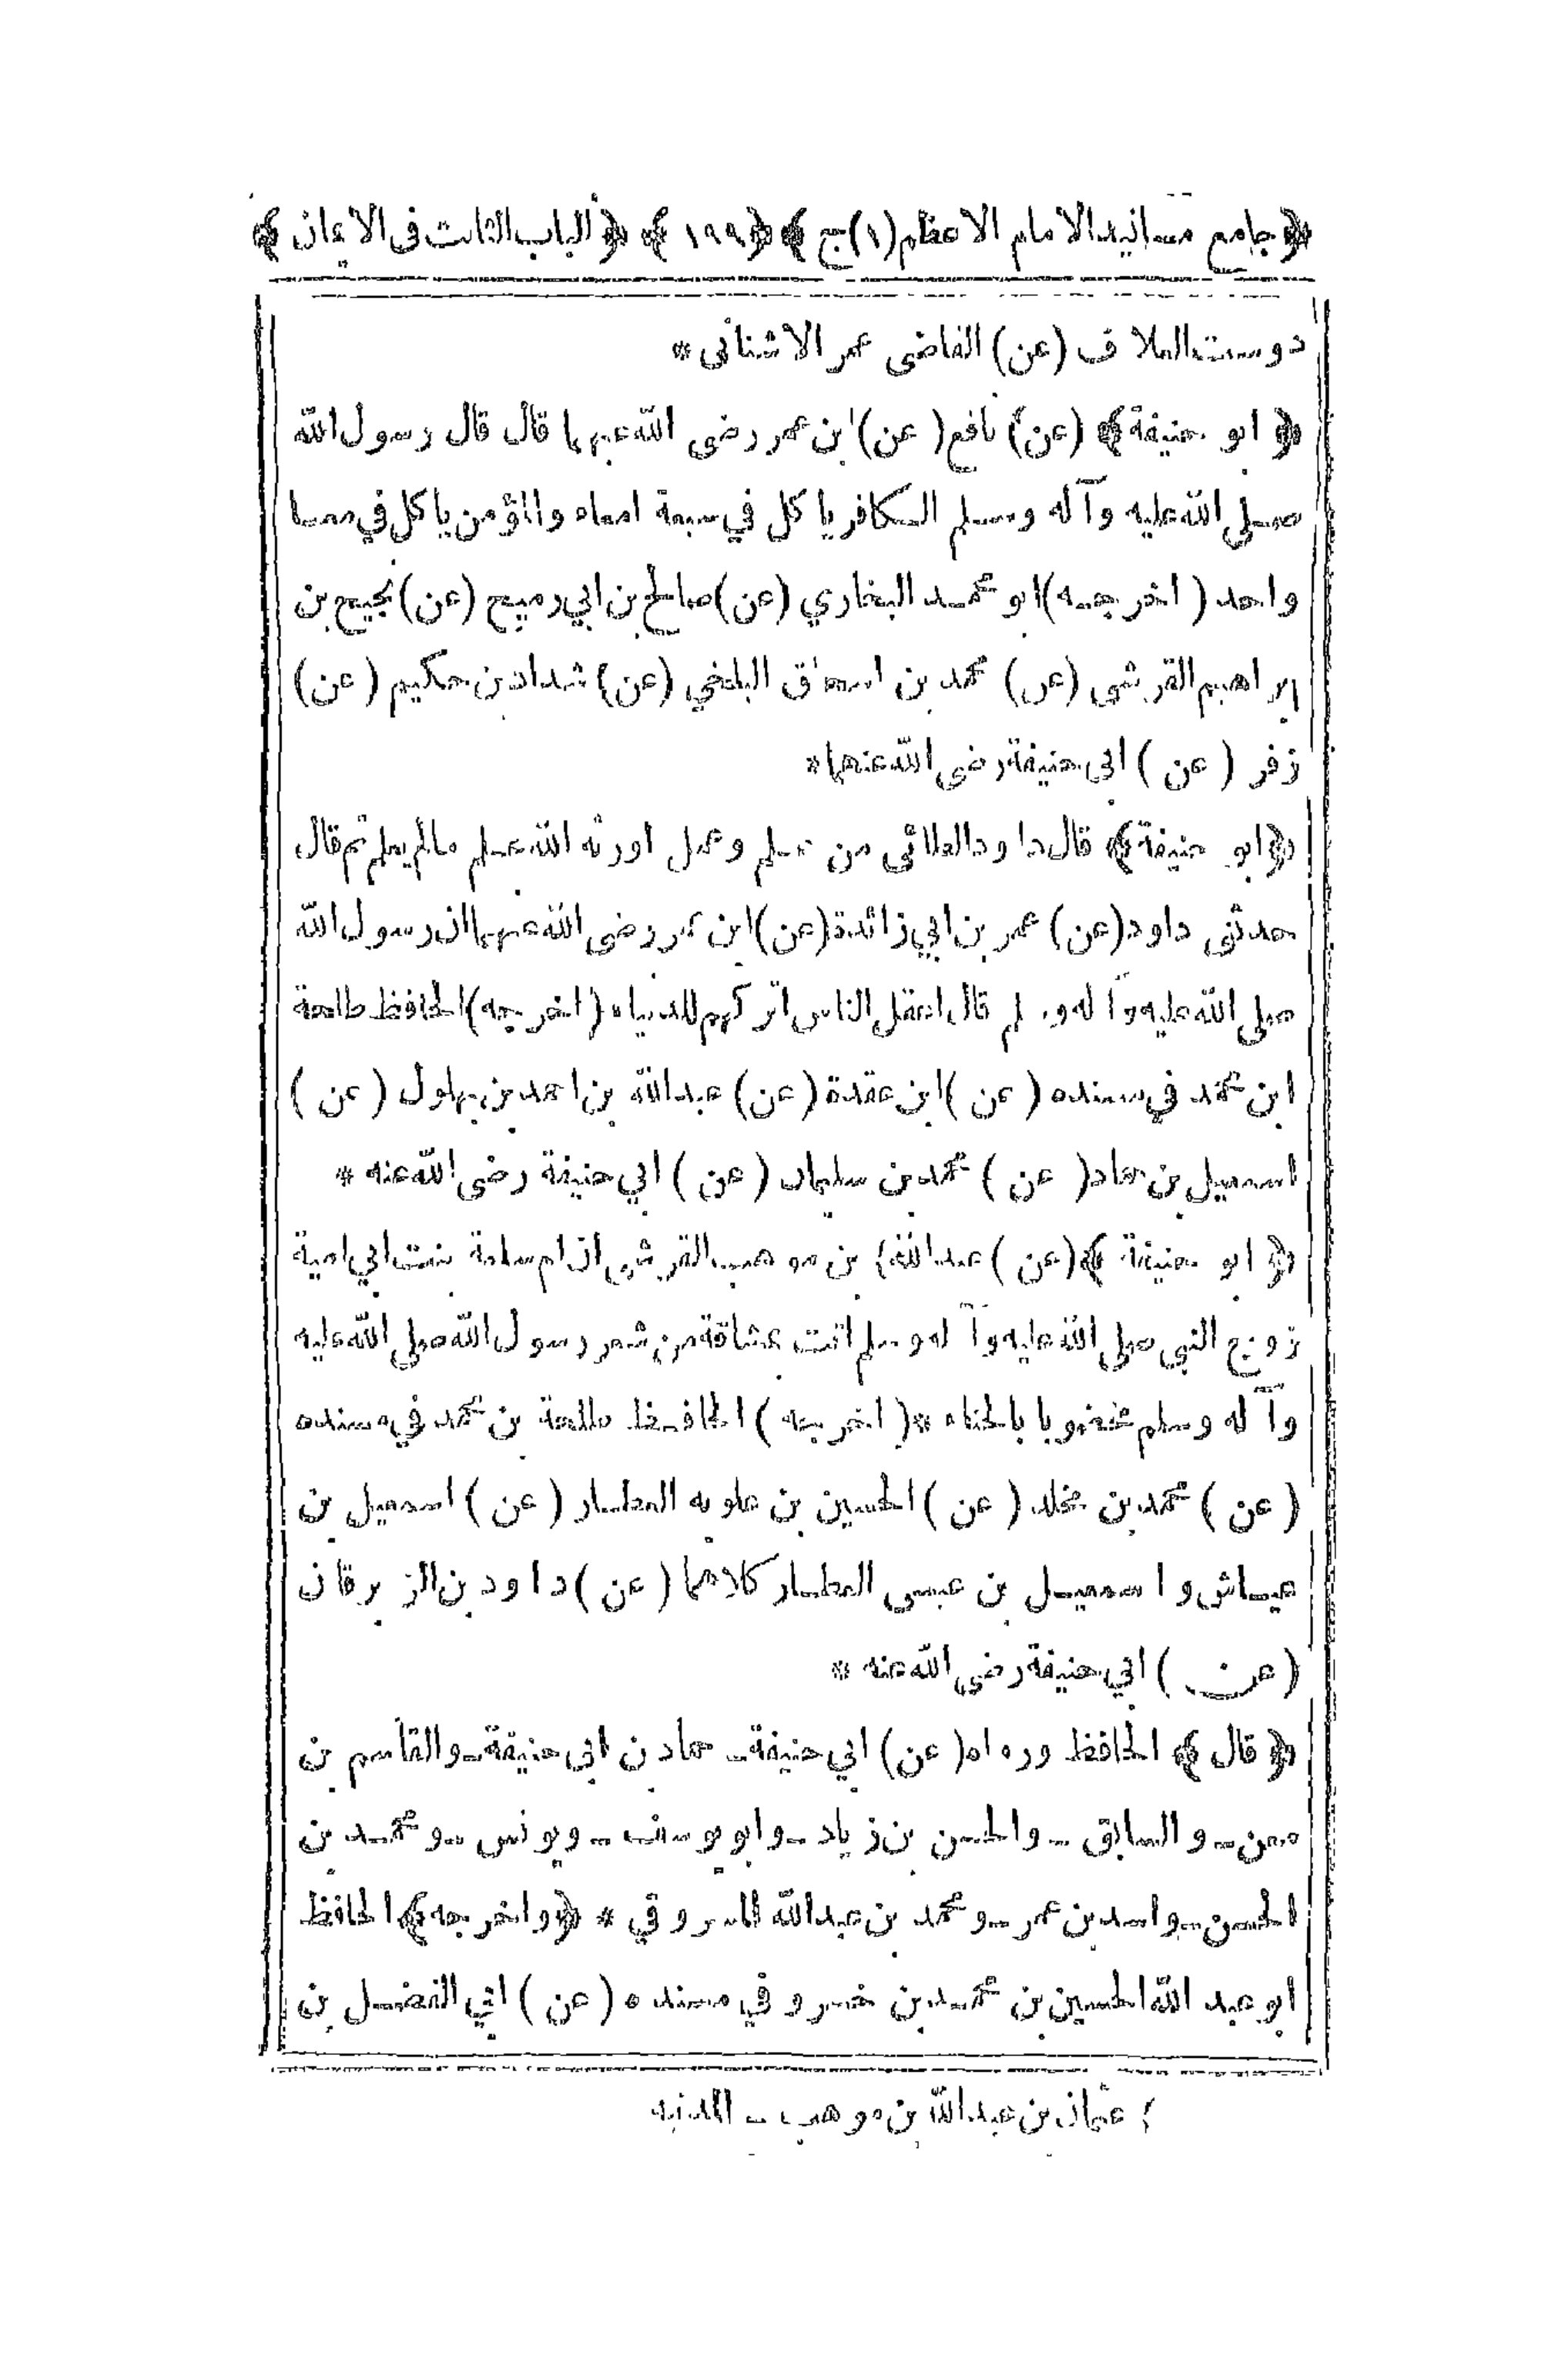 ﴿جامع مسانيد الامام الاعظم (١) ج﴾ ﴿١٩٩﴾ ﴿الباب الثالث فى الايمان﴾
دوست العلاف (عن) القاضى عمر الاشنانى *
﴿ابو حنيفة﴾ (عن) نافع (عن) ابن عمر رضى الله عنهما قال قال رسول الله
صلى الله عليه وآله وسلم الكافر ياكل في سبعة امعاء والمؤمن ياكل في معا
واحد (اخرجه) ابو محمد البخاري (عن) صالح بن ابي رميح (عن) نجيح بن
ابراهيم القرشى (عن) محمد بن اسحاق البلخي (عن) شداد بن حكيم (عن)
زفر (عن) ابى حنيفة رضى الله عنهما *
﴿ابو حنيفة﴾ قال داود الطائى من علم وعمل اورثه الله علم مالم يعلم ثم قال
حدثنى داود (عن) عمر بن ابي زائدة (عن) ابن عمر رضى الله عنهما ان رسول الله
صلى الله عليه وآله وسلم قال اعقل الناس اتركهم للدنيا * (اخرجه) الحافظ طلحة
ابن محمد في مسنده (عن) ابن عقدة (عن) عبد الله بن احمد بن بهلول (عن)
اسمعيل بن حماد (عن) محمد بن سليمان (عن) ابي حنيفة رضى الله عنه *
﴿ابو حنيفة﴾ (عن) عبد الله بن موهب القرشى ان ام سلمة بنت ابي امية
زوج النبي صلى الله عليه وآله وسلم اتت بمشاقة من شعر رسول الله صلى الله عليه
وآله وسلم مخضوبا بالحناء * (اخرجه) الحافظ طلحة بن محمد في مسنده
(عن) محمد بن مخلد (عن) الحسين بن علويه العطار (عن) اسمعيل بن
عياش واسمعيل بن عيسى العطار كلاهما (عن) داود بن الزبرقان
(عن) ابي حنيفة رضى الله عنه *
﴿قال﴾ الحافظ ورواه (عن) ابي حنيفة ـ حماد بن ابى حنيفة ـ والقاسم بن
معن ـ والسابق ـ والحسن بن زياد ـ وابو يوسف ـ ويونس ـ ومحمد بن
الحسن ـ واسد بن عمر ـ ومحمد بن عبد الله المسروقي * ﴿واخرجه﴾ الحافظ
ابو عبد الله الحسين بن محمد بن خسرو في مسنده (عن) ابي الفضل بن
عثمان بن عبد الله بن موهب ـ